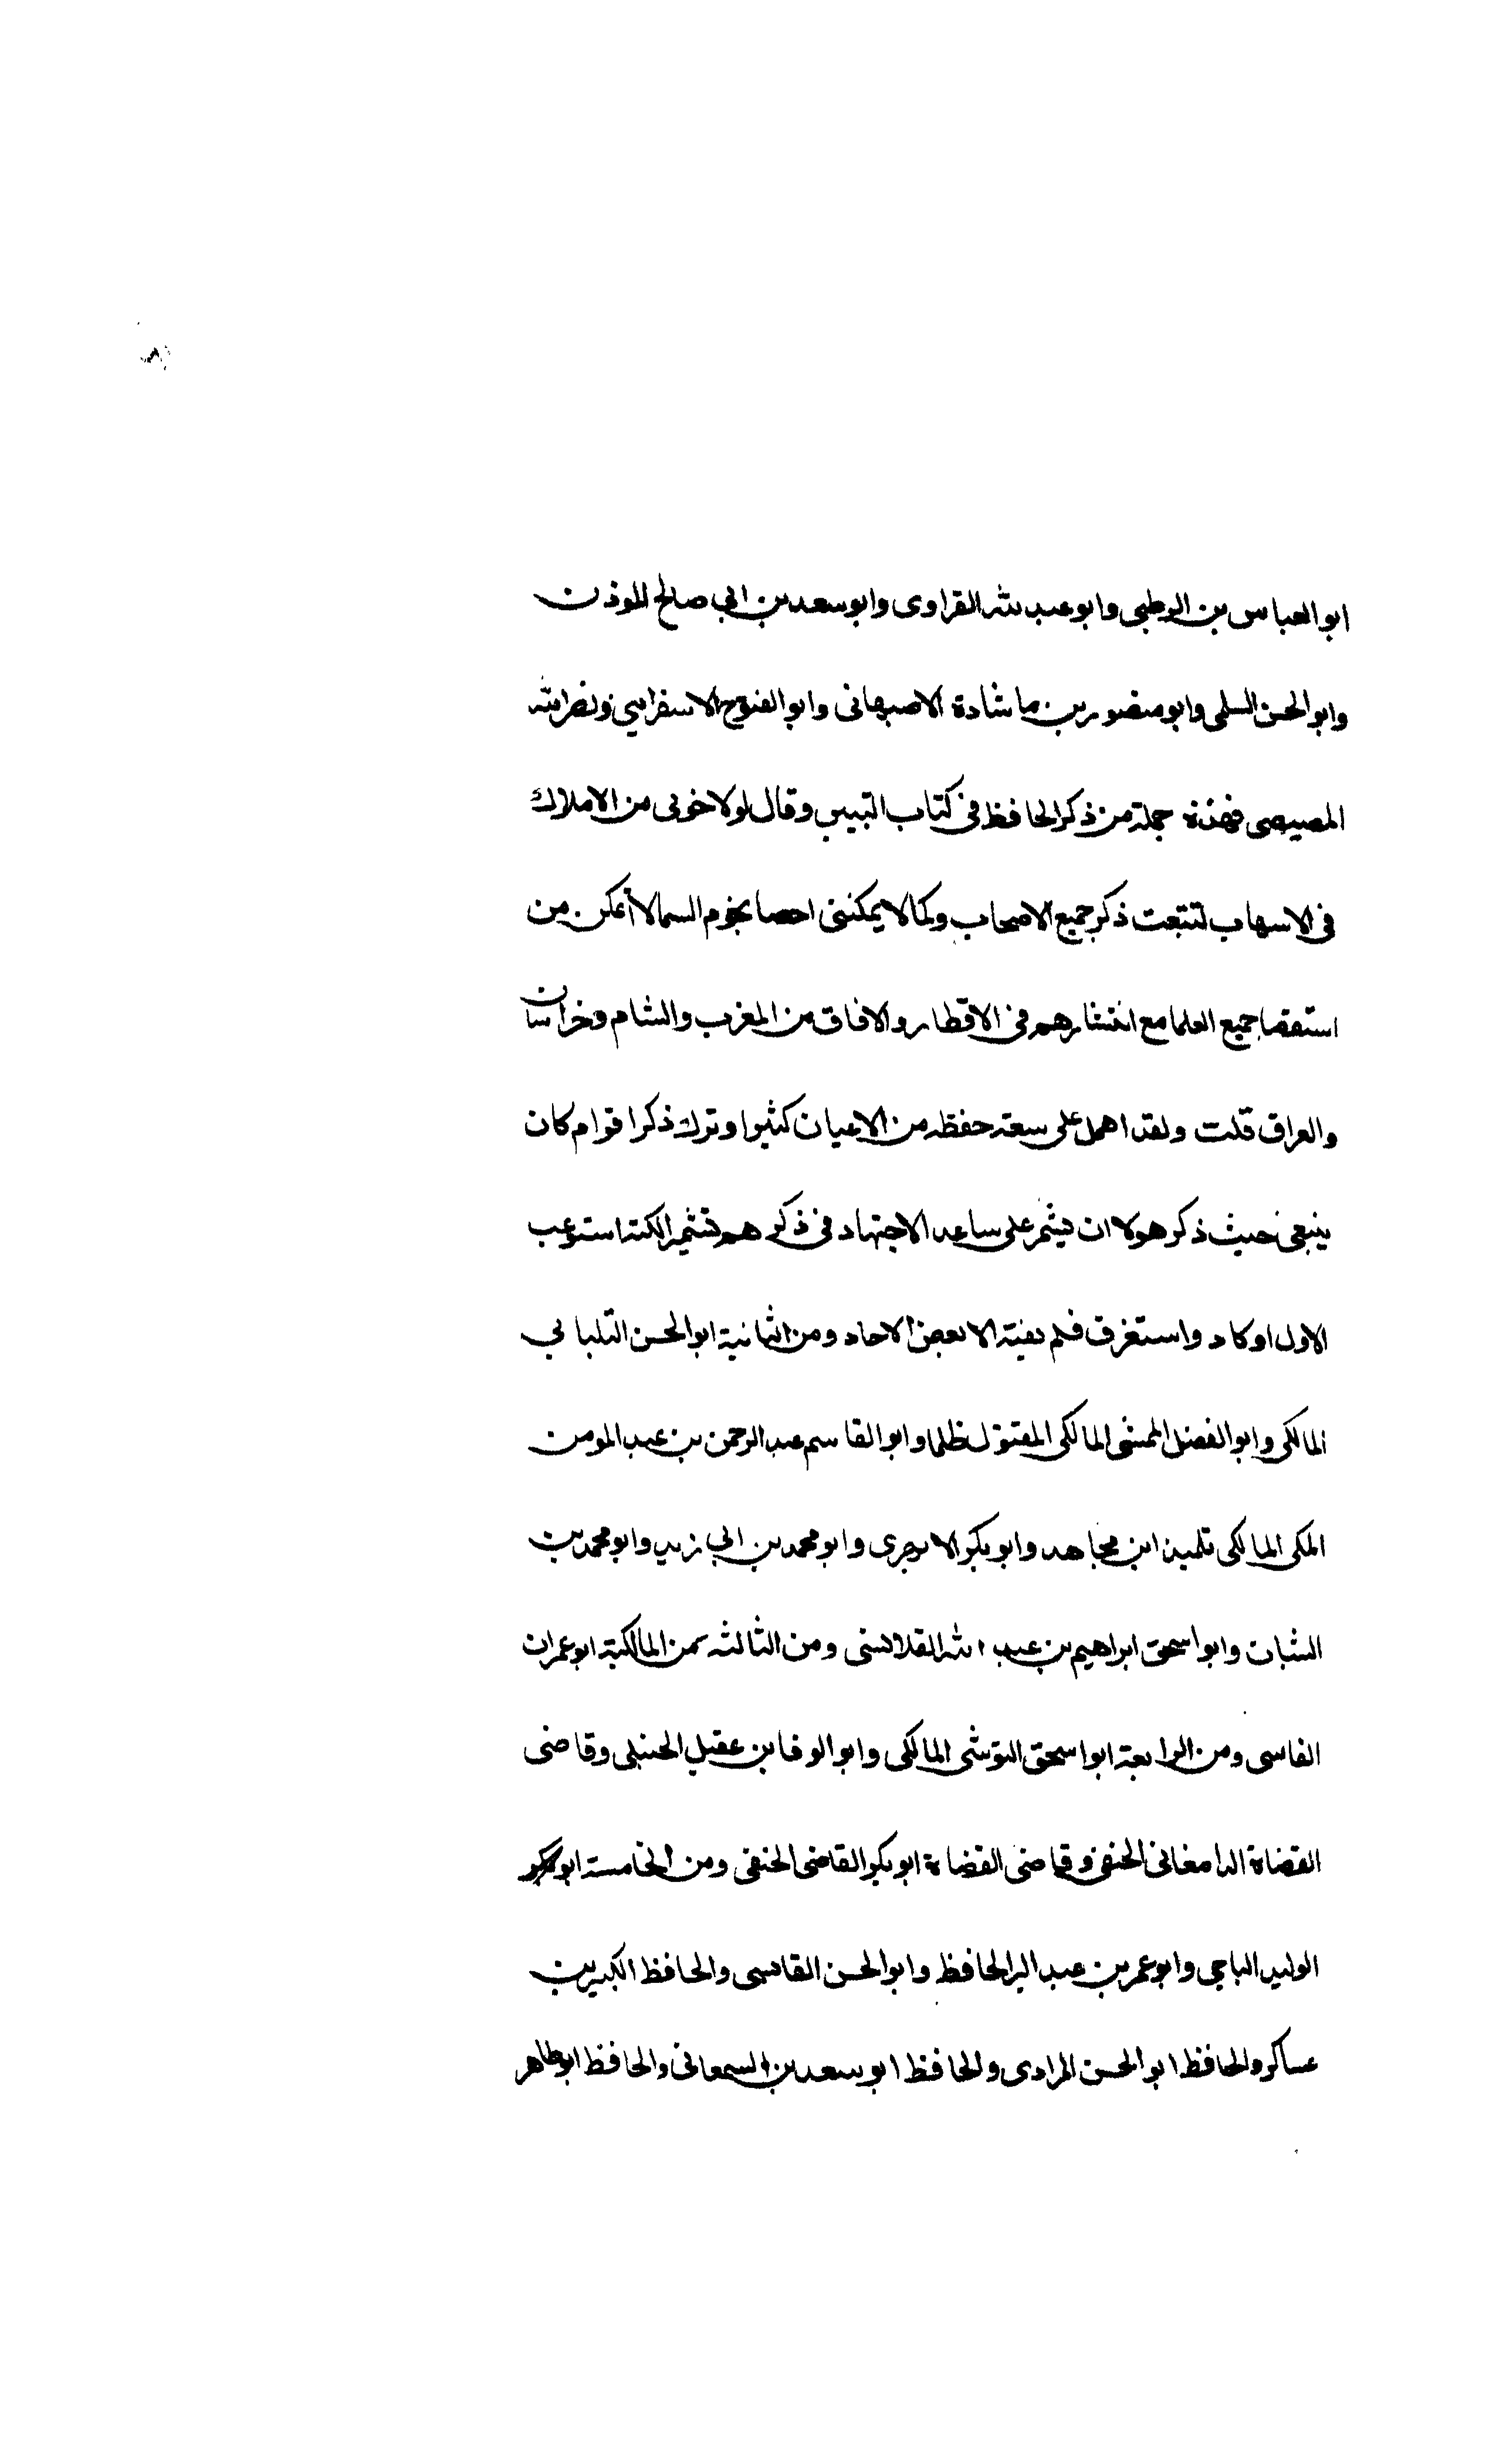 ابو العباس بن الرطبي وابو عبد الله القراوى وابو سعد بن ابي صالح الموذن
وابو الحسن السلمى وابو منصور بن ماشادة الاصبهانى وابو الفتوح الاسفرايي ونصر الله
المصيصى فهذة جملة من ذكر الحافظ فى كتاب التبيين وقال لولا خوفى من الاملاك
فى الاسهاب لتتبعت ذكر جميع الاصحاب وكما لا يمكننى احصا نجوم السما لا أتمكن من
استقصا جميع العلما مع انتشارهم فى الاقطار والافاق من المغرب والشام وخراسان
والعراق قلت ولقد اهمل على سعة حفظه من الاعيان كثيرا وترك ذكر اقوام كان
ينبغى حيث ذكر هولا ان يشمر على ساعد الاجتهاد فى ذكرهم تشميرا لكنه استوعب
الاول او كاد واستغرق فلم يفته الا بعض الاحاد ومن الثانية ابو الحسن التلباني
المالكى وابو الفضل الممشى المالكى المقتول ظلما وابو القاسم عبد الرحمن بن عبد المومن
المكى المالكى تلميذ ابن مجاهد وابو بكر الابهرى وابو محمد بن ابي زيد وابو محمد بن
التبان وابو اسحق ابراهيم بن عبد الله القلانسى ومن الثالثه من المالكية ابو عمران
الفاسى ومن الرابعة ابو اسحق التونسى المالكى وابو الوفا بن عقيل الحنبلى وقاضى
القضاة الدامغانى الحنفى وقاضى القضاة ابو بكر القاضى الحنفى ومن الخامسة ابو
الوليد الباجى وابو عمر بن عبد البر الحافظ وابو الحسن القابسى والحافظ الكبير بن
عساكر والحافظ ابو الحسن المرادى والحافظ ابو سعد بن السمعانى والحافظ ابو طاهر